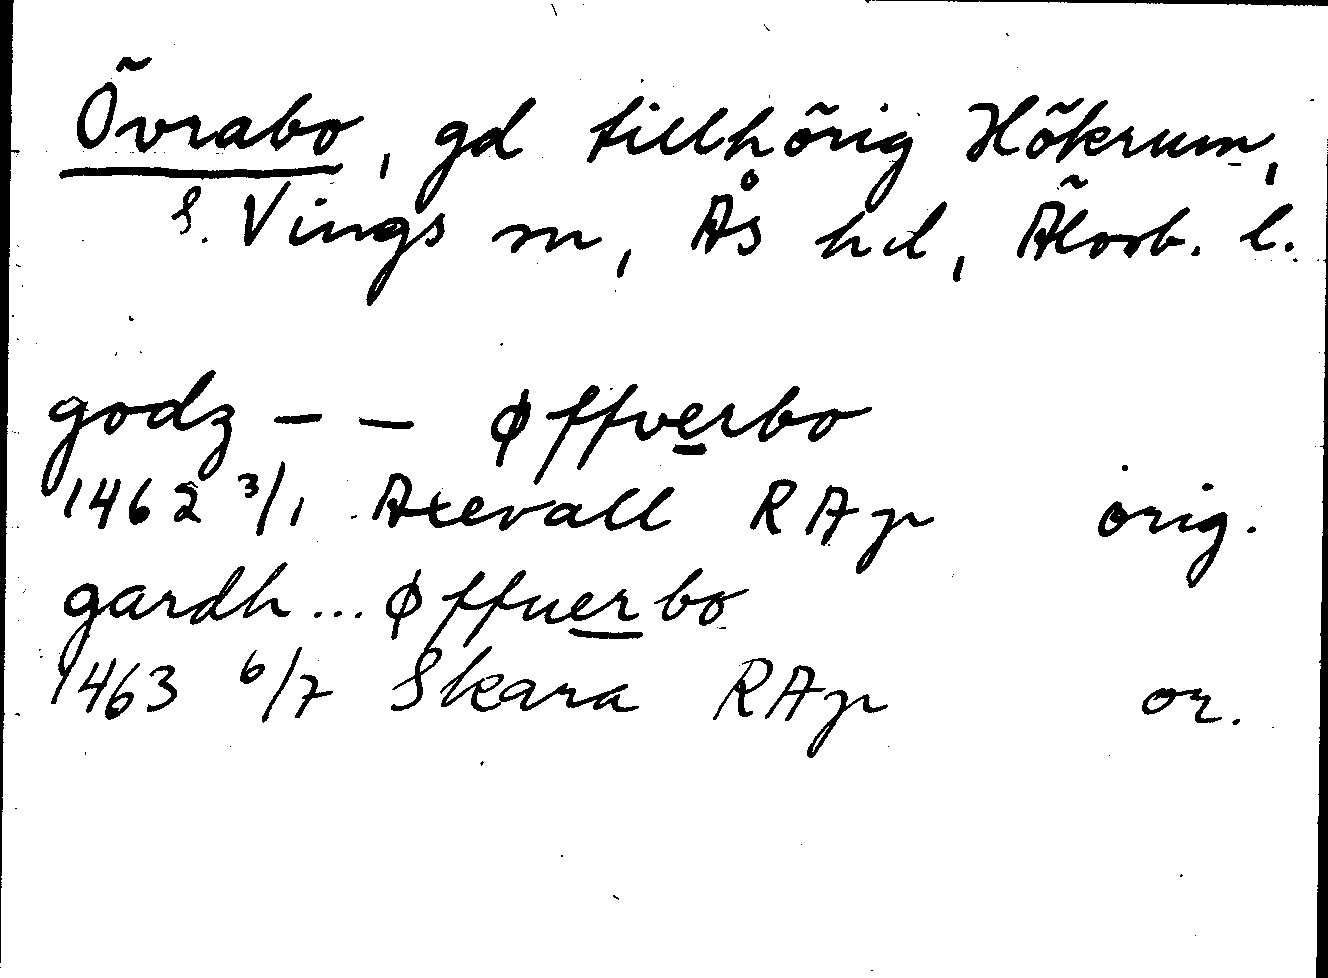 Övrabo, gd tillhörig Hökrum,
s. Vings sn, Ås hd, Älvsb. l.
godz – – Øffverbo
1462 3/1 Axevall RAp orig.
gardh... Øffuerbo
1463 6/7 Skara RAp or.